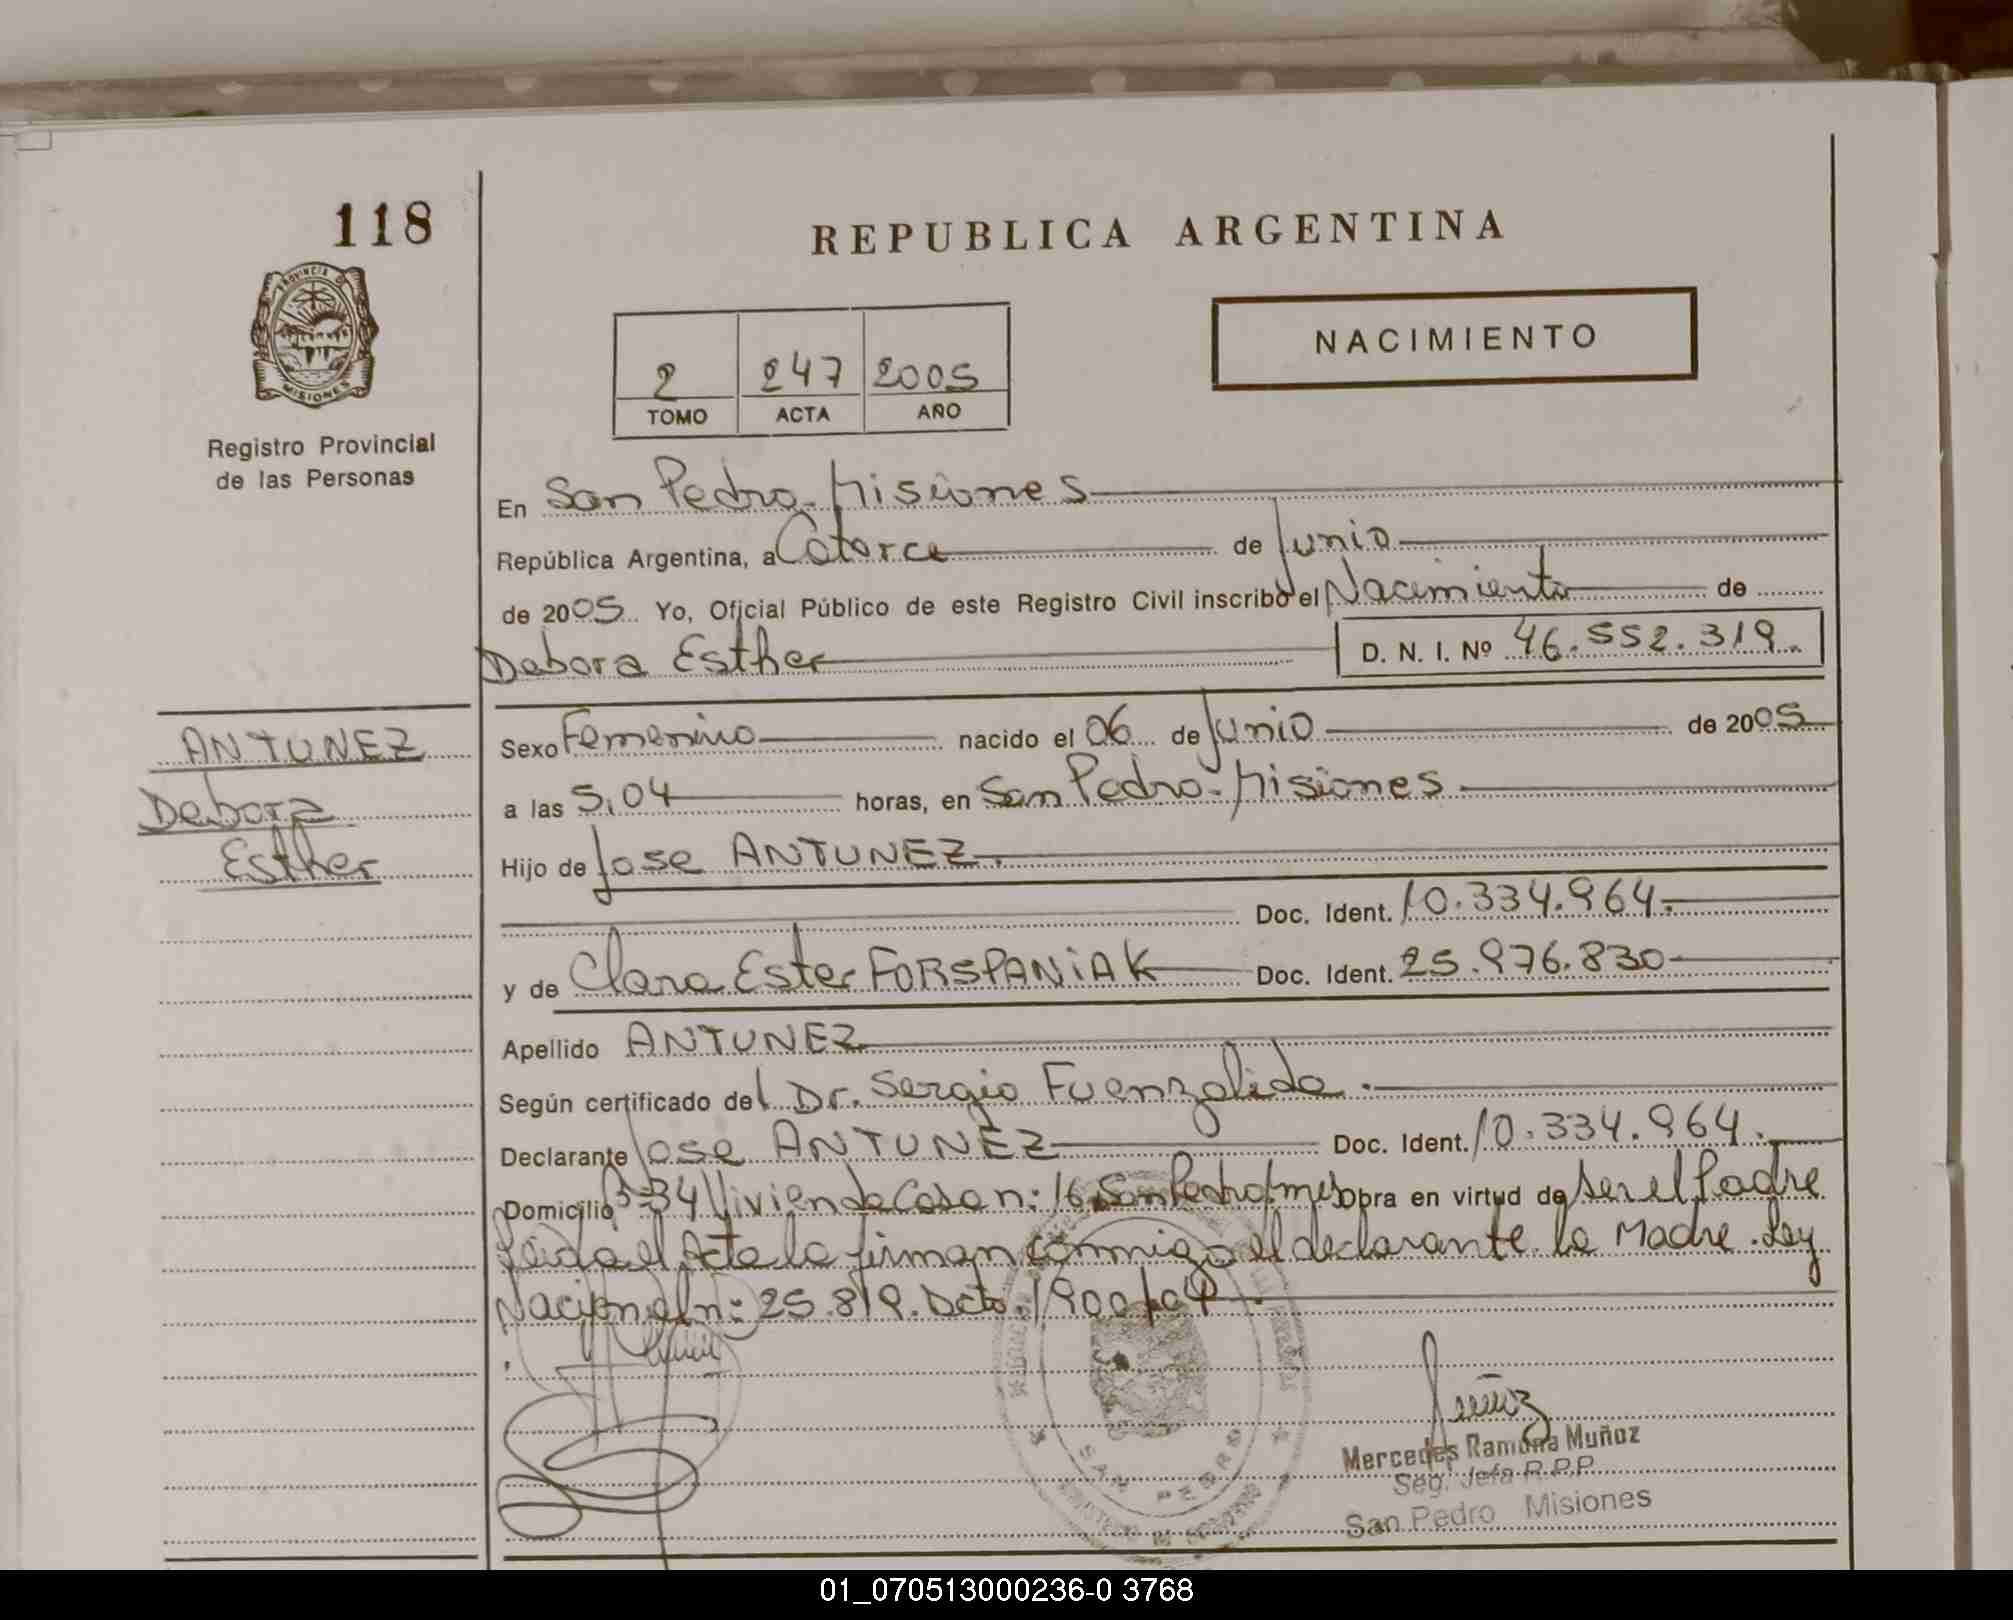 118
REPUBLICA ARGENTINA
PROVINCIA DE
MISIONES
Registro Provincial
de las Personas
2 247 2005
TOMO ACTA AÑO
NACIMIENTO
En San Pedro-Misiones
República Argentina, a Catorce de Junio
de 2005 Yo, Oficial Público de este Registro Civil inscribo el Nacimiento de
Debora Esther D. N. I. Nº 46.552.319.
ANTUNEZ
Debora
Esther
Sexo Femenino nacido el 06 de Junio de 2005
a las 5,04 horas, en San Pedro-Misiones
Hijo de Jose ANTUNEZ.
Doc. Ident. 10.334.964.
y de Clara Ester FORSPANiAK Doc. Ident. 25.976.830
Apellido ANTUNEZ
Según certificado del Dr. Sergio Fuenzalida.
Declarante Jose ANTUNEZ Doc. Ident. 10.334.964.
Domicilio B-34 Vivienda Casa n: 16 San Pedro Mes Obra en virtud de ser el Padre
leida el Acta la firman conmigo el declarante la Madre. Ley
Nacional n: 25.819. Dcto. 1900/04.
SAN PEDRO
Muñoz
Mercedes Ramona Muñoz
Seg. Jefa R.P.P
San Pedro Misiones
01_070513000236-0 3768